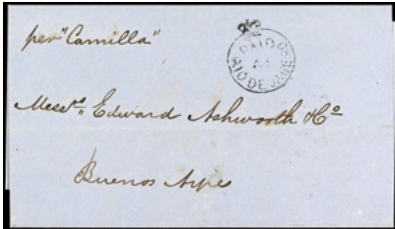 per "Camilla"
PAID
AT
RIO DE JANE
Messrs. Edward Ashworth & Co
Buenos Ayres